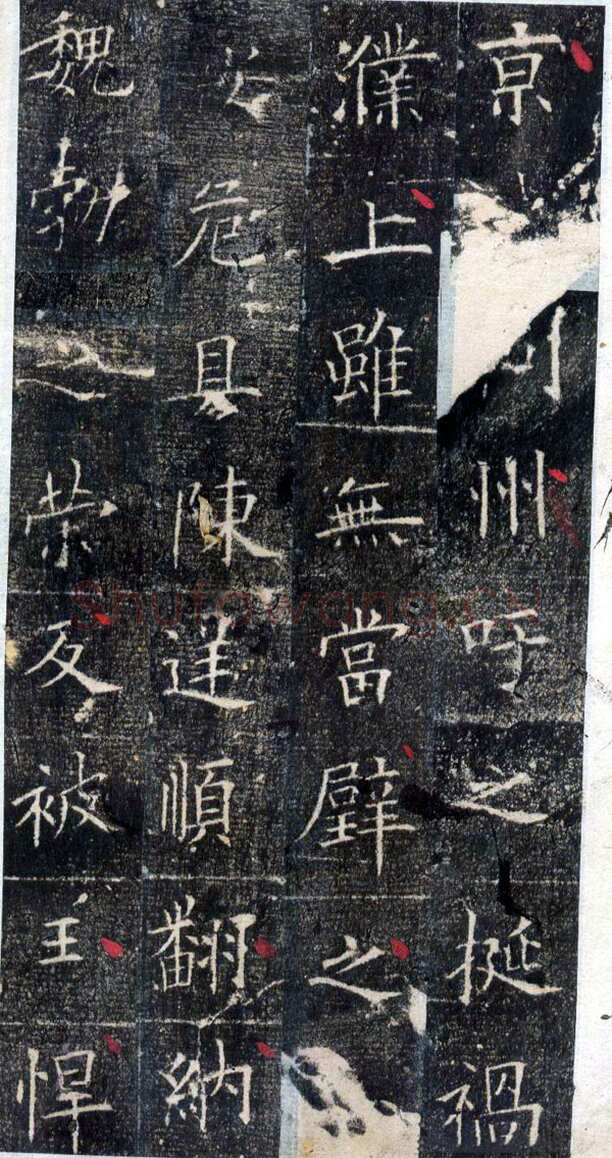 京州吁之挺禍
濮上雖無當璧之
安危具陳逆順翻納
魏勃之策反被王悍